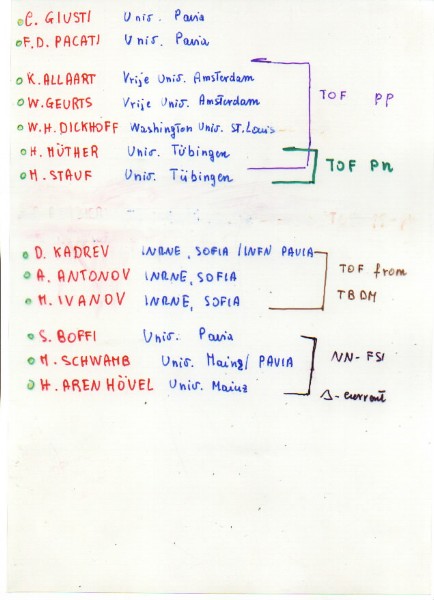 C. GIUSTI Univ. Pavia
F.D. PACATI Univ. Pavia
K. ALLAART Vrije Univ. Amsterdam
W. GEURTS Vrije Univ. Amsterdam
TOF PP
W.H. DICKHOFF Washington Univ. St. Louis
H. MÜTHER Univ. Tübingen
TOF Pn
M. STAUF Univ. Tübingen
D. KADREV INRNE, SOFIA / INFN PAVIA
A. ANTONOV INRNE, SOFIA
TOF from
TBDM
M. IVANOV INRNE, SOFIA
S. BOFFI Univ. Pavia
M. SCHWAMB Univ. Mainz / PAVIA
NN-FSI
H. ARENHÖVEL Univ. Mainz
Δ-current